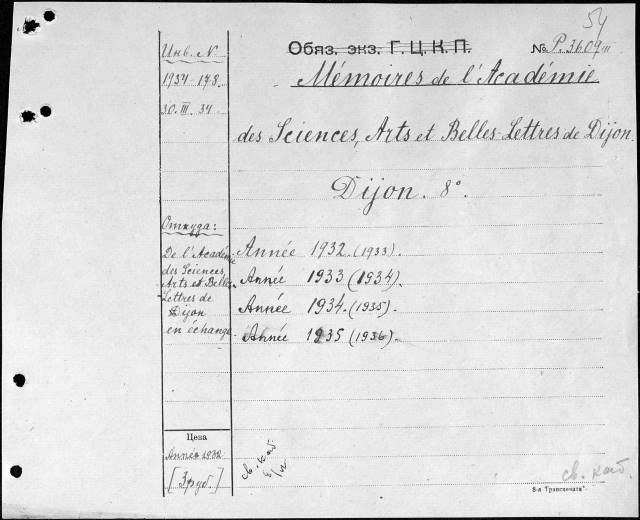 54
Обяз. экз. Г.Ц.К.П.
№ P.3609 III
Инв. N
1934-178
30.III.34.
Mémoires de l'Académie
des Sciences, Arts et Belles-Lettres de Dijon.
Dijon. 8°.
Откуда:
De l'Académie
des Sciences,
Arts et Belles-
Lettres de
Dijon
en échange.
Année 1932. (1933).
Année 1933 (1934).
Année 1934. (1935).
Année 1935 (1936).
Цена
Année 1932
[3 руб.]
св. каб.
св. каб.
8-я Транспечати